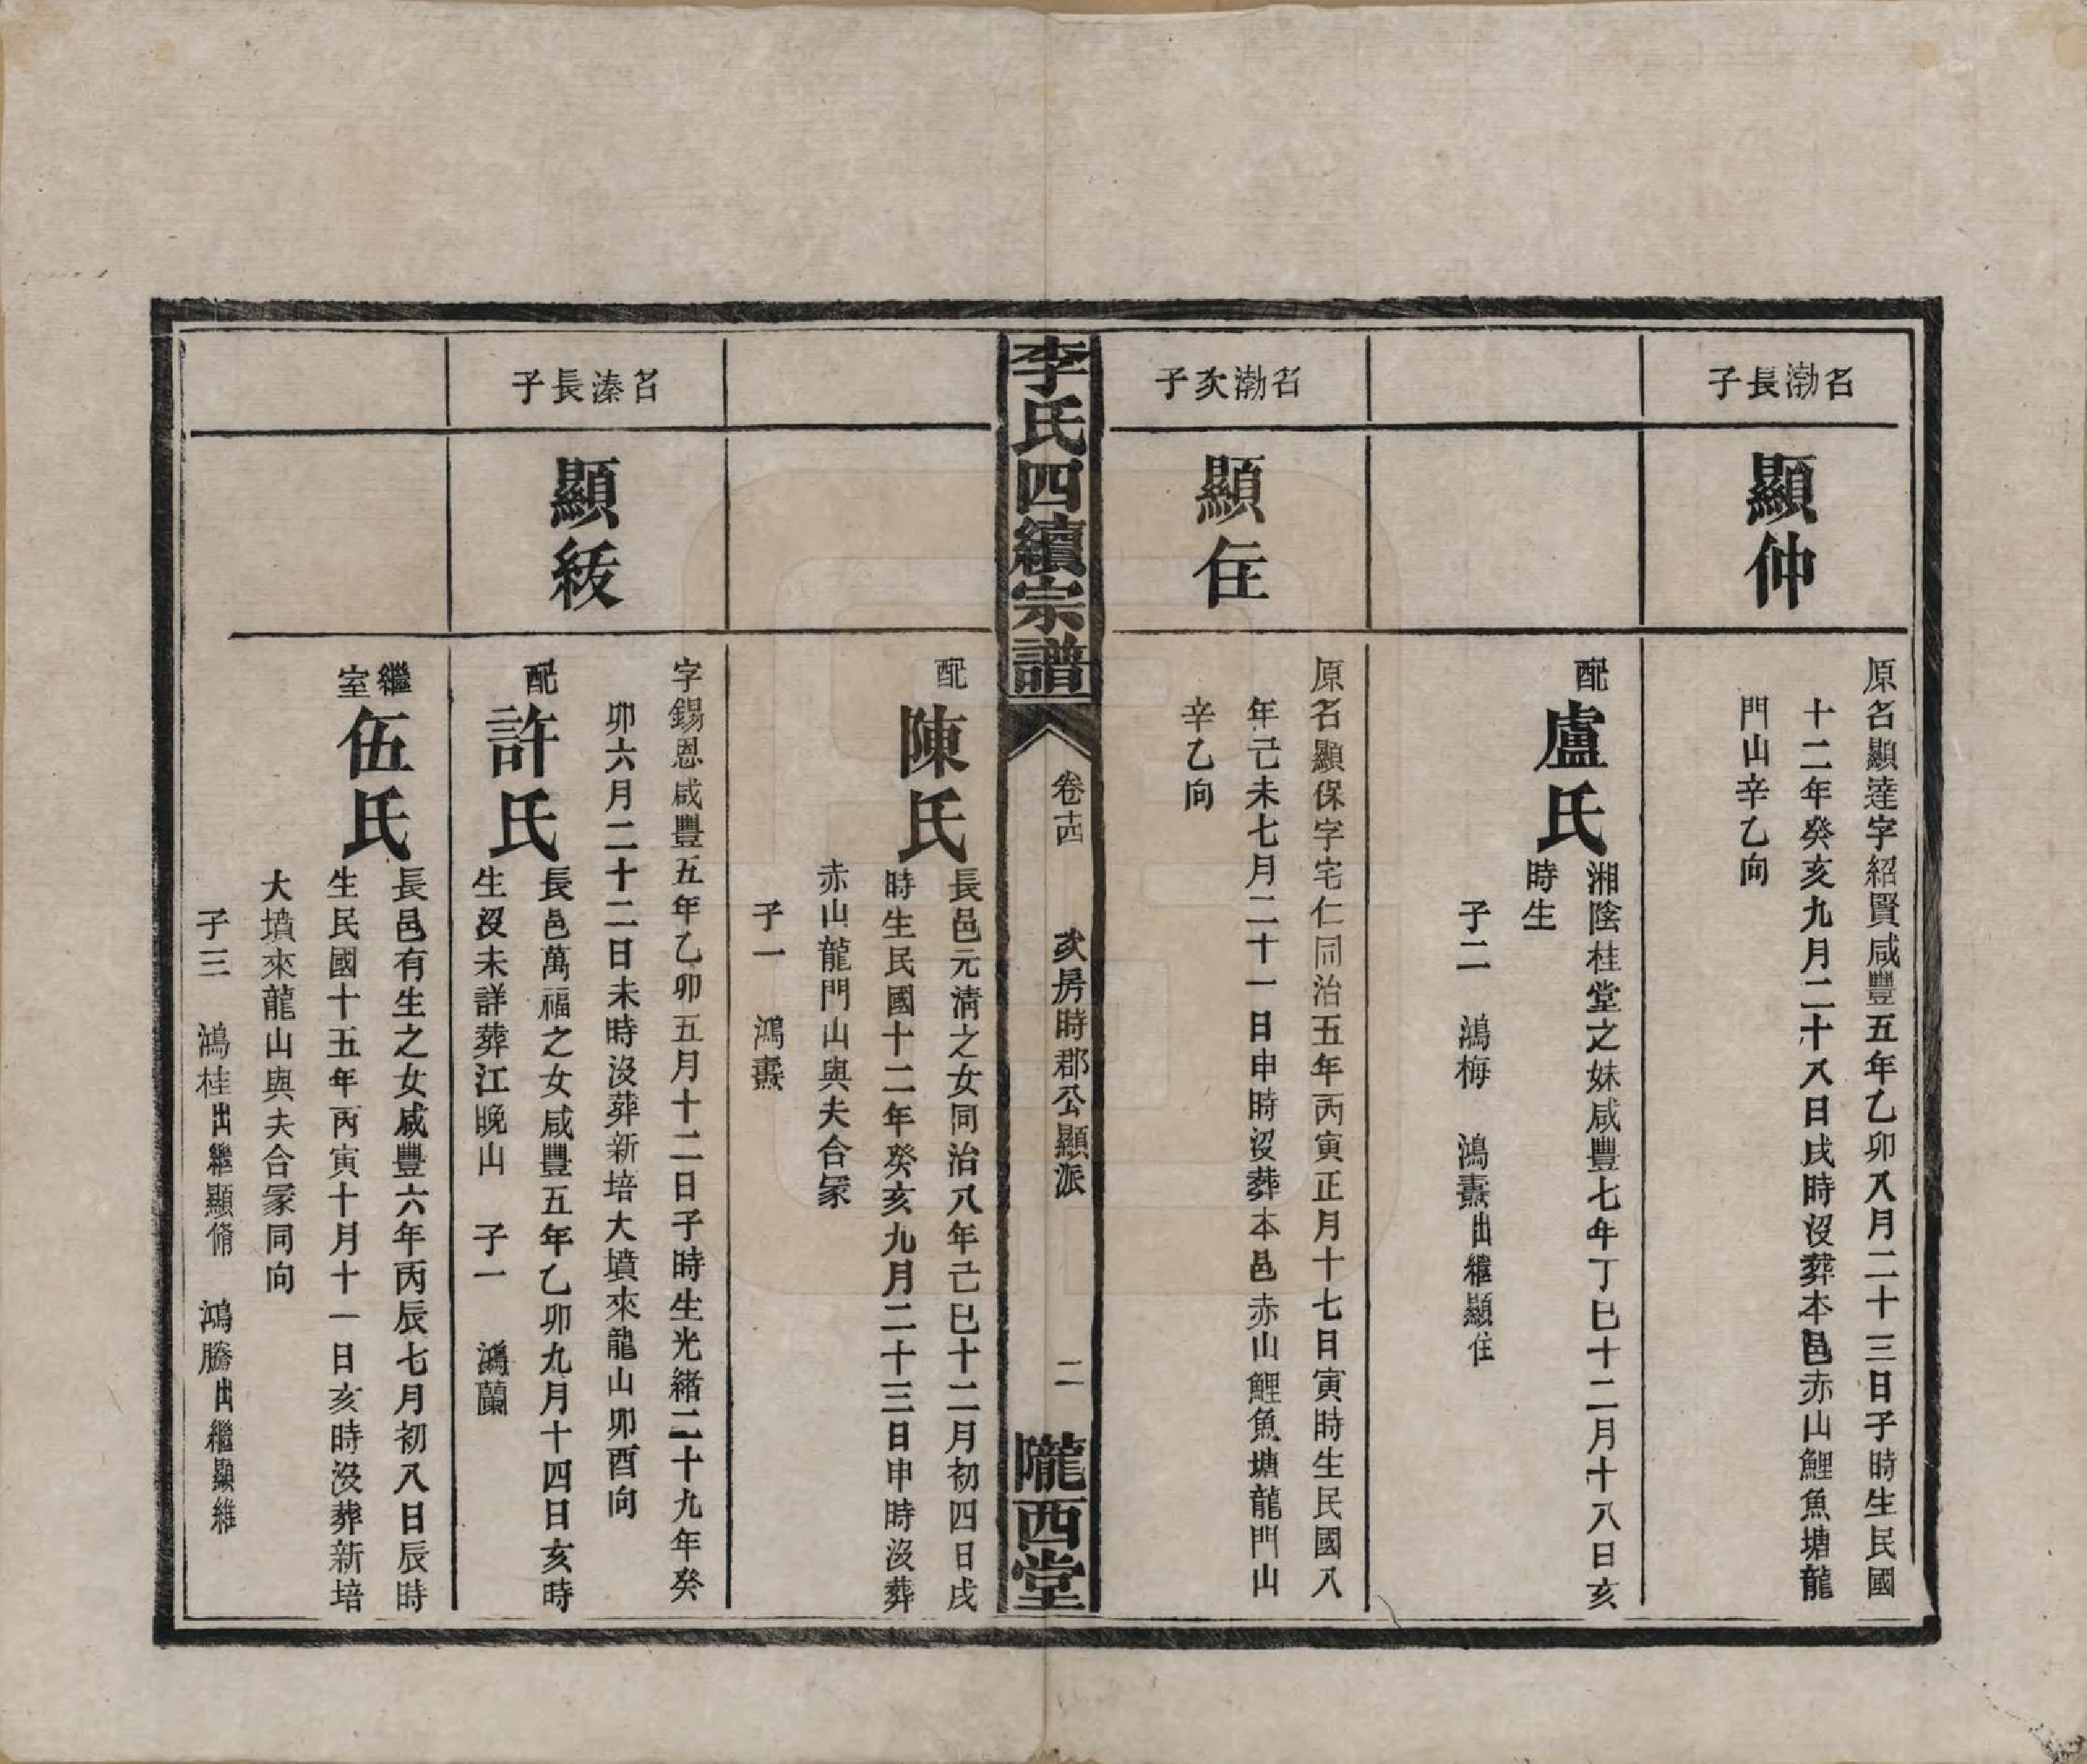 名渤長子
顯仲
原名顯達字紹賢咸豐五年乙卯八月二十三日子時生民國
十二年癸亥九月二十八日戌時沒葬本邑赤山鯉魚塘龍
門山辛乙向
配
盧氏
湘陰桂堂之妹咸豐七年丁巳十二月十八日亥
時生
子二　鴻梅　鴻燾出繼顯住
名渤次子
顯住
原名顯保字宅仁同治五年丙寅正月十七日寅時生民國八
年己未七月二十一日申時沒葬本邑赤山鯉魚塘龍門山
辛乙向
李氏四續宗譜
卷十四
次房時郡公顯派
二
隴西堂
配
陳氏
長邑元清之女同治八年己巳十二月初四日戌
時生民國十二年癸亥九月二十三日申時沒葬
赤山龍門山與夫合冢
子一　鴻燾
名溱長子
顯紱
字錫恩咸豐五年乙卯五月十二日子時生光緒二十九年癸
卯六月二十二日未時沒葬新培大墳來龍山卯酉向
配
許氏
長邑萬福之女咸豐五年乙卯九月十四日亥時
生沒未詳葬江晚山　子一　鴻蘭
繼室
伍氏
長邑有生之女咸豐六年丙辰七月初八日辰時
生民國十五年丙寅十月十一日亥時沒葬新培
大墳來龍山與夫合冢同向
子三　鴻桂出繼顯脩　鴻騰出繼顯維